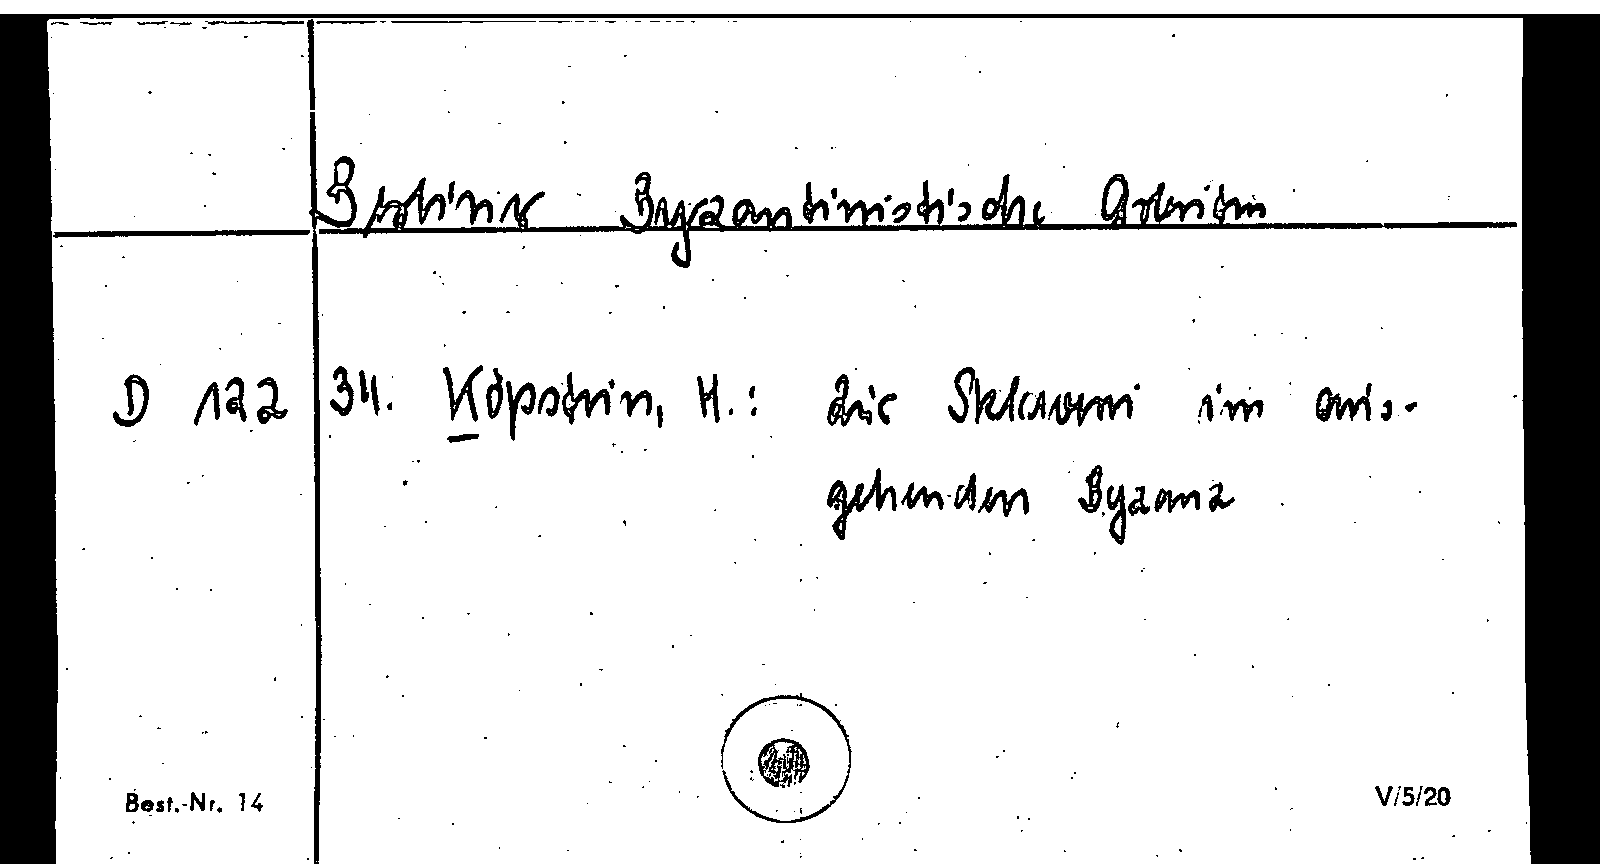 Berliner Byzantinistische Arbeiten
D 122 34. Köpstein, H.: Zur Sklaverei im aus-
gehenden Byzanz
Best.-Nr. 14 V/5/20